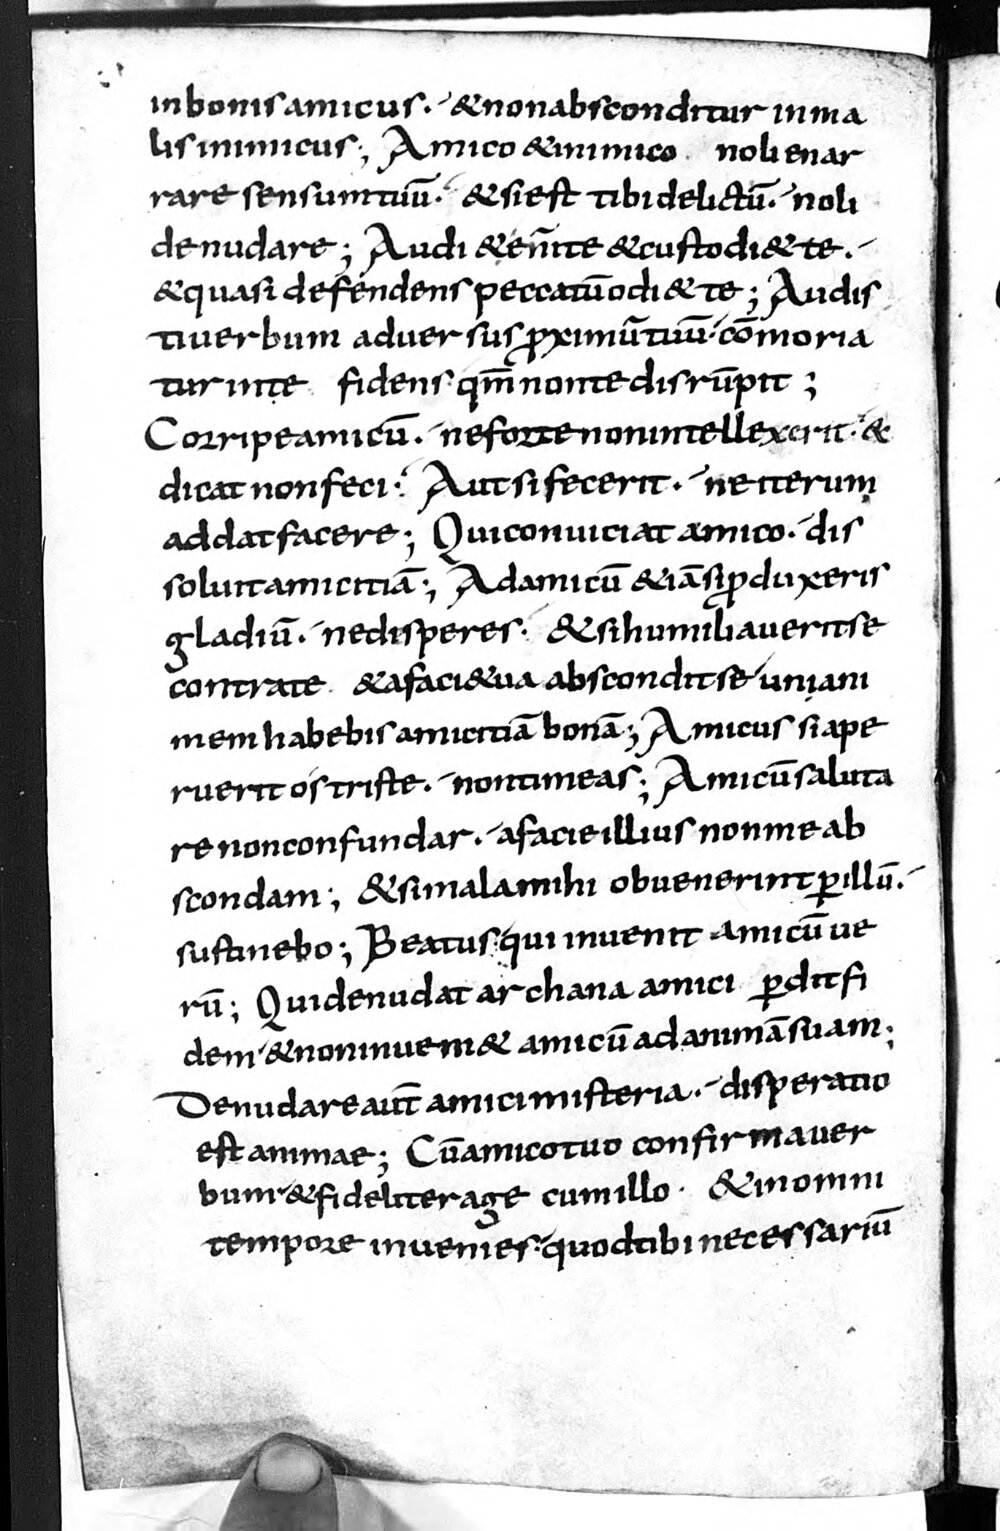 inbonisamicus. &nonabsconditur inma
lisinimicus; Amico &inimico noli enar
rare sensumtuū. & siest tibi delictū. noli
denudare; Audi &enīte &custodi&te.
&quasi defendens peccatū odi&te; Audis
tiuerbum aduersus ꝓximūtuū. cōmoria
tur inte fidens qm̄ nonte disrūpit;
Corripeamicū. neforte nonintellexerit. &
dicat nonfeci. Aut si fecerit. ne iterum
addatfacere; Qui conuiciat amico. dis
soluitamicitiā; Adamicū &iāsi ꝓduxeris
gladiū. nedisperes. &sihumiliaueritse
contrate &afaci&ua absconditse uniani
memhabebis amicitiā bonā; Amicus si ape
ruerit os triste. nontimeas; Amicūsaluta
re nonconfundar. afacie illius nonmeab
scondam; &simalamihi obuenerint ꝑillū.
sustinebo; Beatus qui inuenit amicūue
rū; Qui denudat archana amici ꝑditfi
dem &noninueni& amicū ad animāsuam;
Denudare aut̄ amici misteria. disperatio
est animae; Cūamicotuo confirmauer
bum &fideliterage cumillo. &inomni
tempore inuenies. quodtibi necessariū